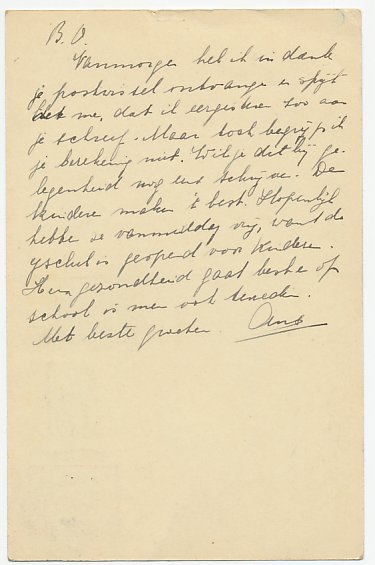 B. O.
Vanmorgen heb ik in dank
je postwissel ontvangen en spijt
het me, dat ik eergisteren zoo aan
je schreef. Maar toch begrijp ik
je berekening niet. Wil je dit bij ge-
legenheid nog eens schrijven. De
kinderen maken 't best. Hopenlijk
hebben ze vanmiddag vrij, want de
ijsclub is geopend voor kinderen.
Hun gezondheid gaat beste op
school is men ook tevreden.
Met beste groeten. Ans